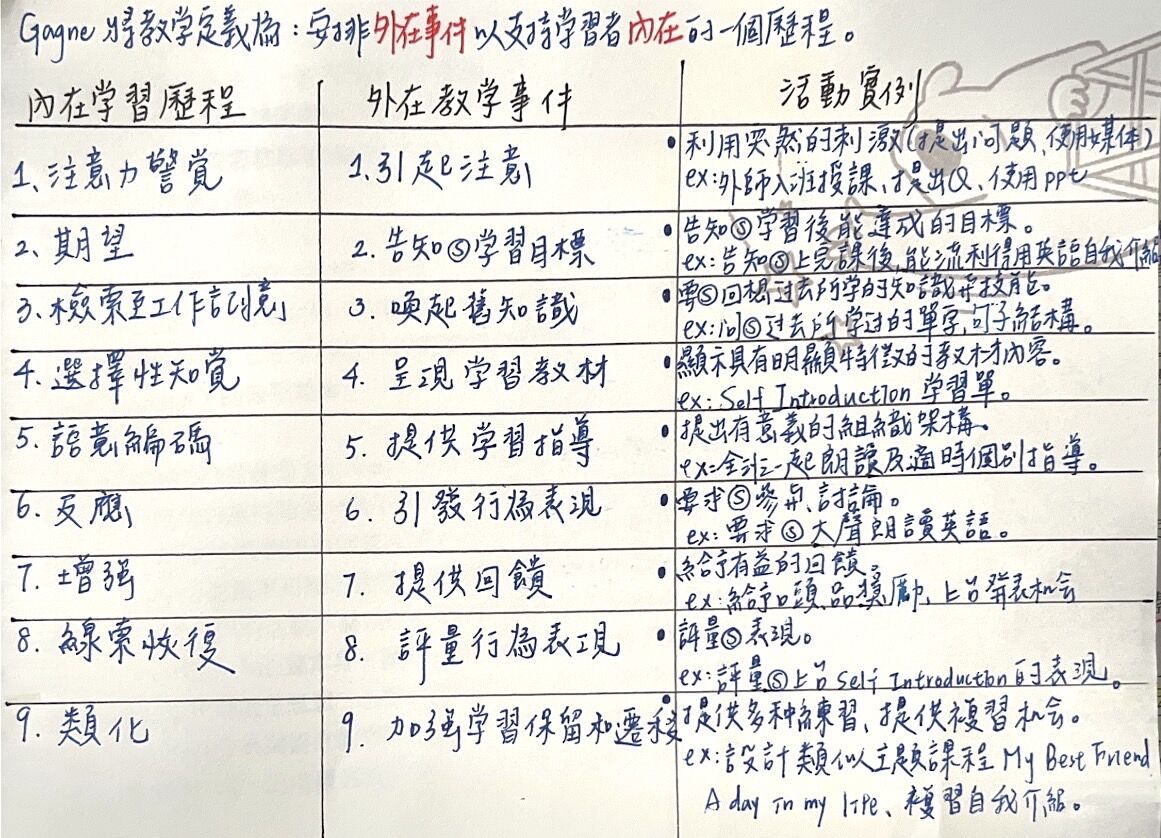 Gagne 將教学定義為：安排外在事件以支持学習者內在的一個歷程。
內在学習歷程 外在教学事件 活動實例
1、注意力警覚 1、引起注意 •利用突然的刺激(提出问題、使用媒体)
ex:外師入班授課、提出Q、使用ppt
2. 期望 2. 告知Ⓢ学習目標 •告知Ⓢ学習後能達成的目標。
ex:告知Ⓢ上完課後,能流利得用英語自我介紹
3.檢索至工作記憶 3. 喚起舊知識 •要Ⓢ回想过去所学的知識與技能。
ex:问Ⓢ过去所学过的單字,句子結構。
4. 選擇性知覚 4. 呈現学習教材 •顯示具有明顯特徵的教材內容。
ex: Self Introduction 学習單。
5. 語意編碼 5. 提供学習指導 •提出有意義的組織架構。
ex:全班一起朗讀及適時個別指導。
6. 反應 6. 引發行為表現 •要求Ⓢ參與討論。
ex: 要求Ⓢ大聲朗讀英語。
7. 增强 7. 提供回饋 •給予有益的回饋。
ex:給予口頭、品獎勵、上台發表机会
8. 線索恢復 8. 評量行為表現 •評量Ⓢ表現。
ex:評量Ⓢ上台 Self Introduction 的表現。
9. 類化 9. 加强学習保留和遷移 •提供多种練習、提供複習机会。
ex:設計類似主題課程 My Best Friend
A day in my life、複習自我介紹。